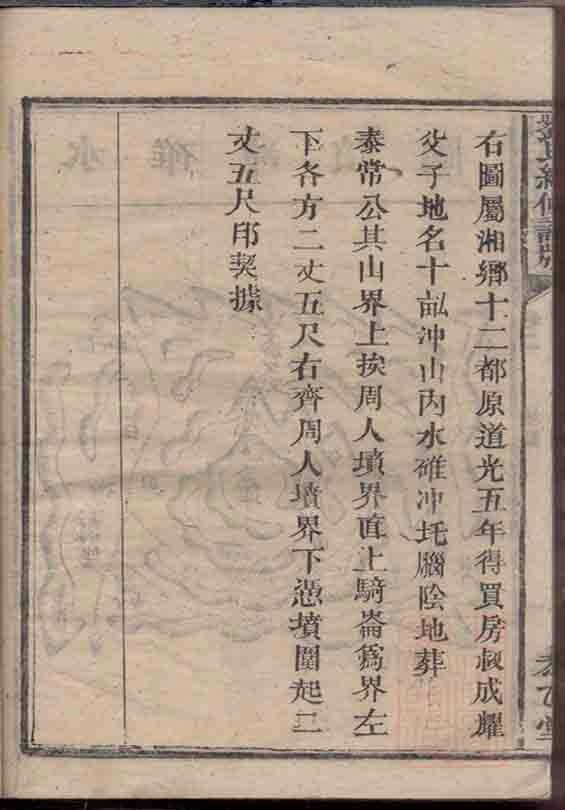 右圖屬湘鄉十二都原道光五年得買房叔成耀
父子地名十畝冲山內水碓冲圫腦陰地葬
泰常公其山界上挨周人墳界直上騎崙爲界左
下各方二丈五尺右齊周人墳界下憑墳圍起二
丈五尺印契據
氏續修譜
堂